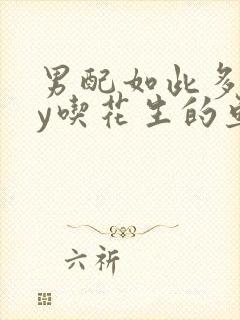 男配如此多
y喫花生的
六祈